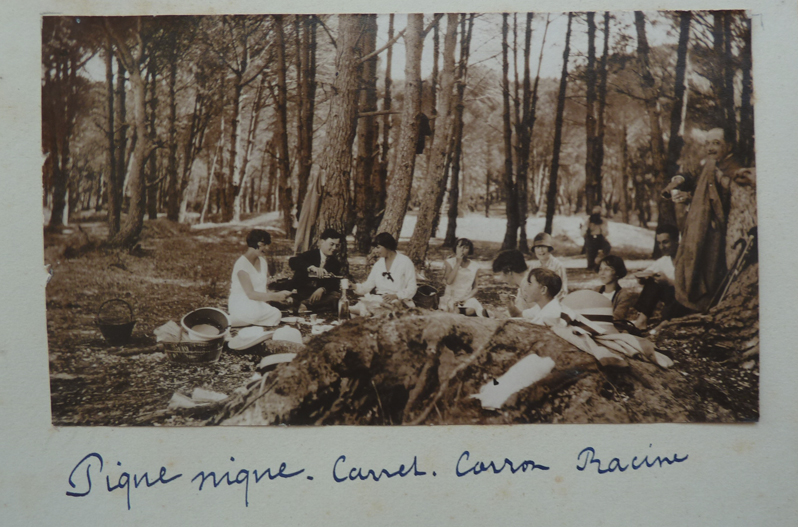 Pique nique. Carret. Carron Racine